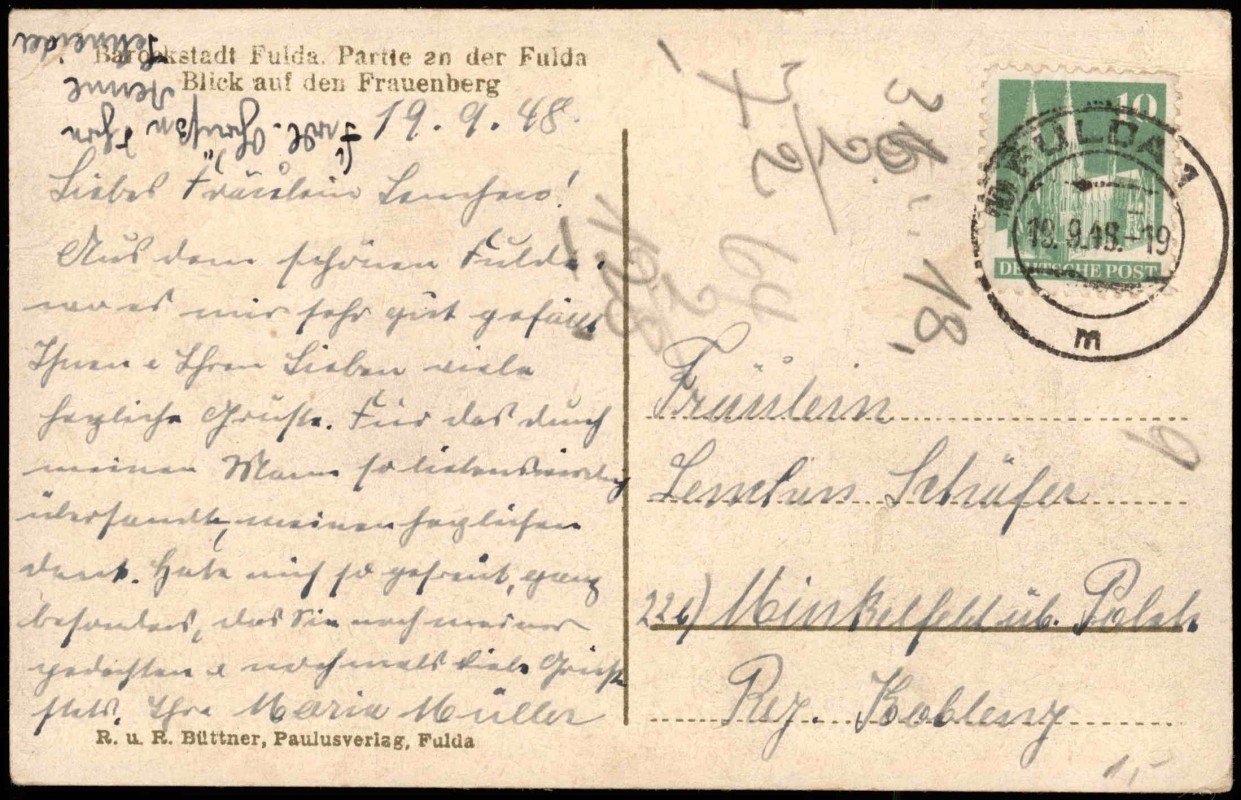 Barockstadt Fulda. Partie an der Fulda
Blick auf den Frauenberg
19. 9. 48.
Liebes Fräulein Lenchen!
Aus dem schönen Fulda,
wo es mir sehr gut gefällt
Ihnen u Ihren Lieben viele
herzliche Grüße. Für das durch
meinen Mann so liebenswürdig
übersandte, meinen herzlichen
Dank. Habe mich so gefreut, ganz
besonders, das Sie noch meiner
gedachten u nochmals viele Grüße
stets. Ihre Maria Müller
Frdl. Grüße Ihre
Schneider
R. u. R. Büttner, Paulusverlag, Fulda
10
DEUTSCHE POST
FULDA 1
19. 9.48.-19
m
Fräulein
Lenchen Schäfer
22b) Minkelfeld üb. Polch.
Bez. Koblenz
18,
64
9
1,-